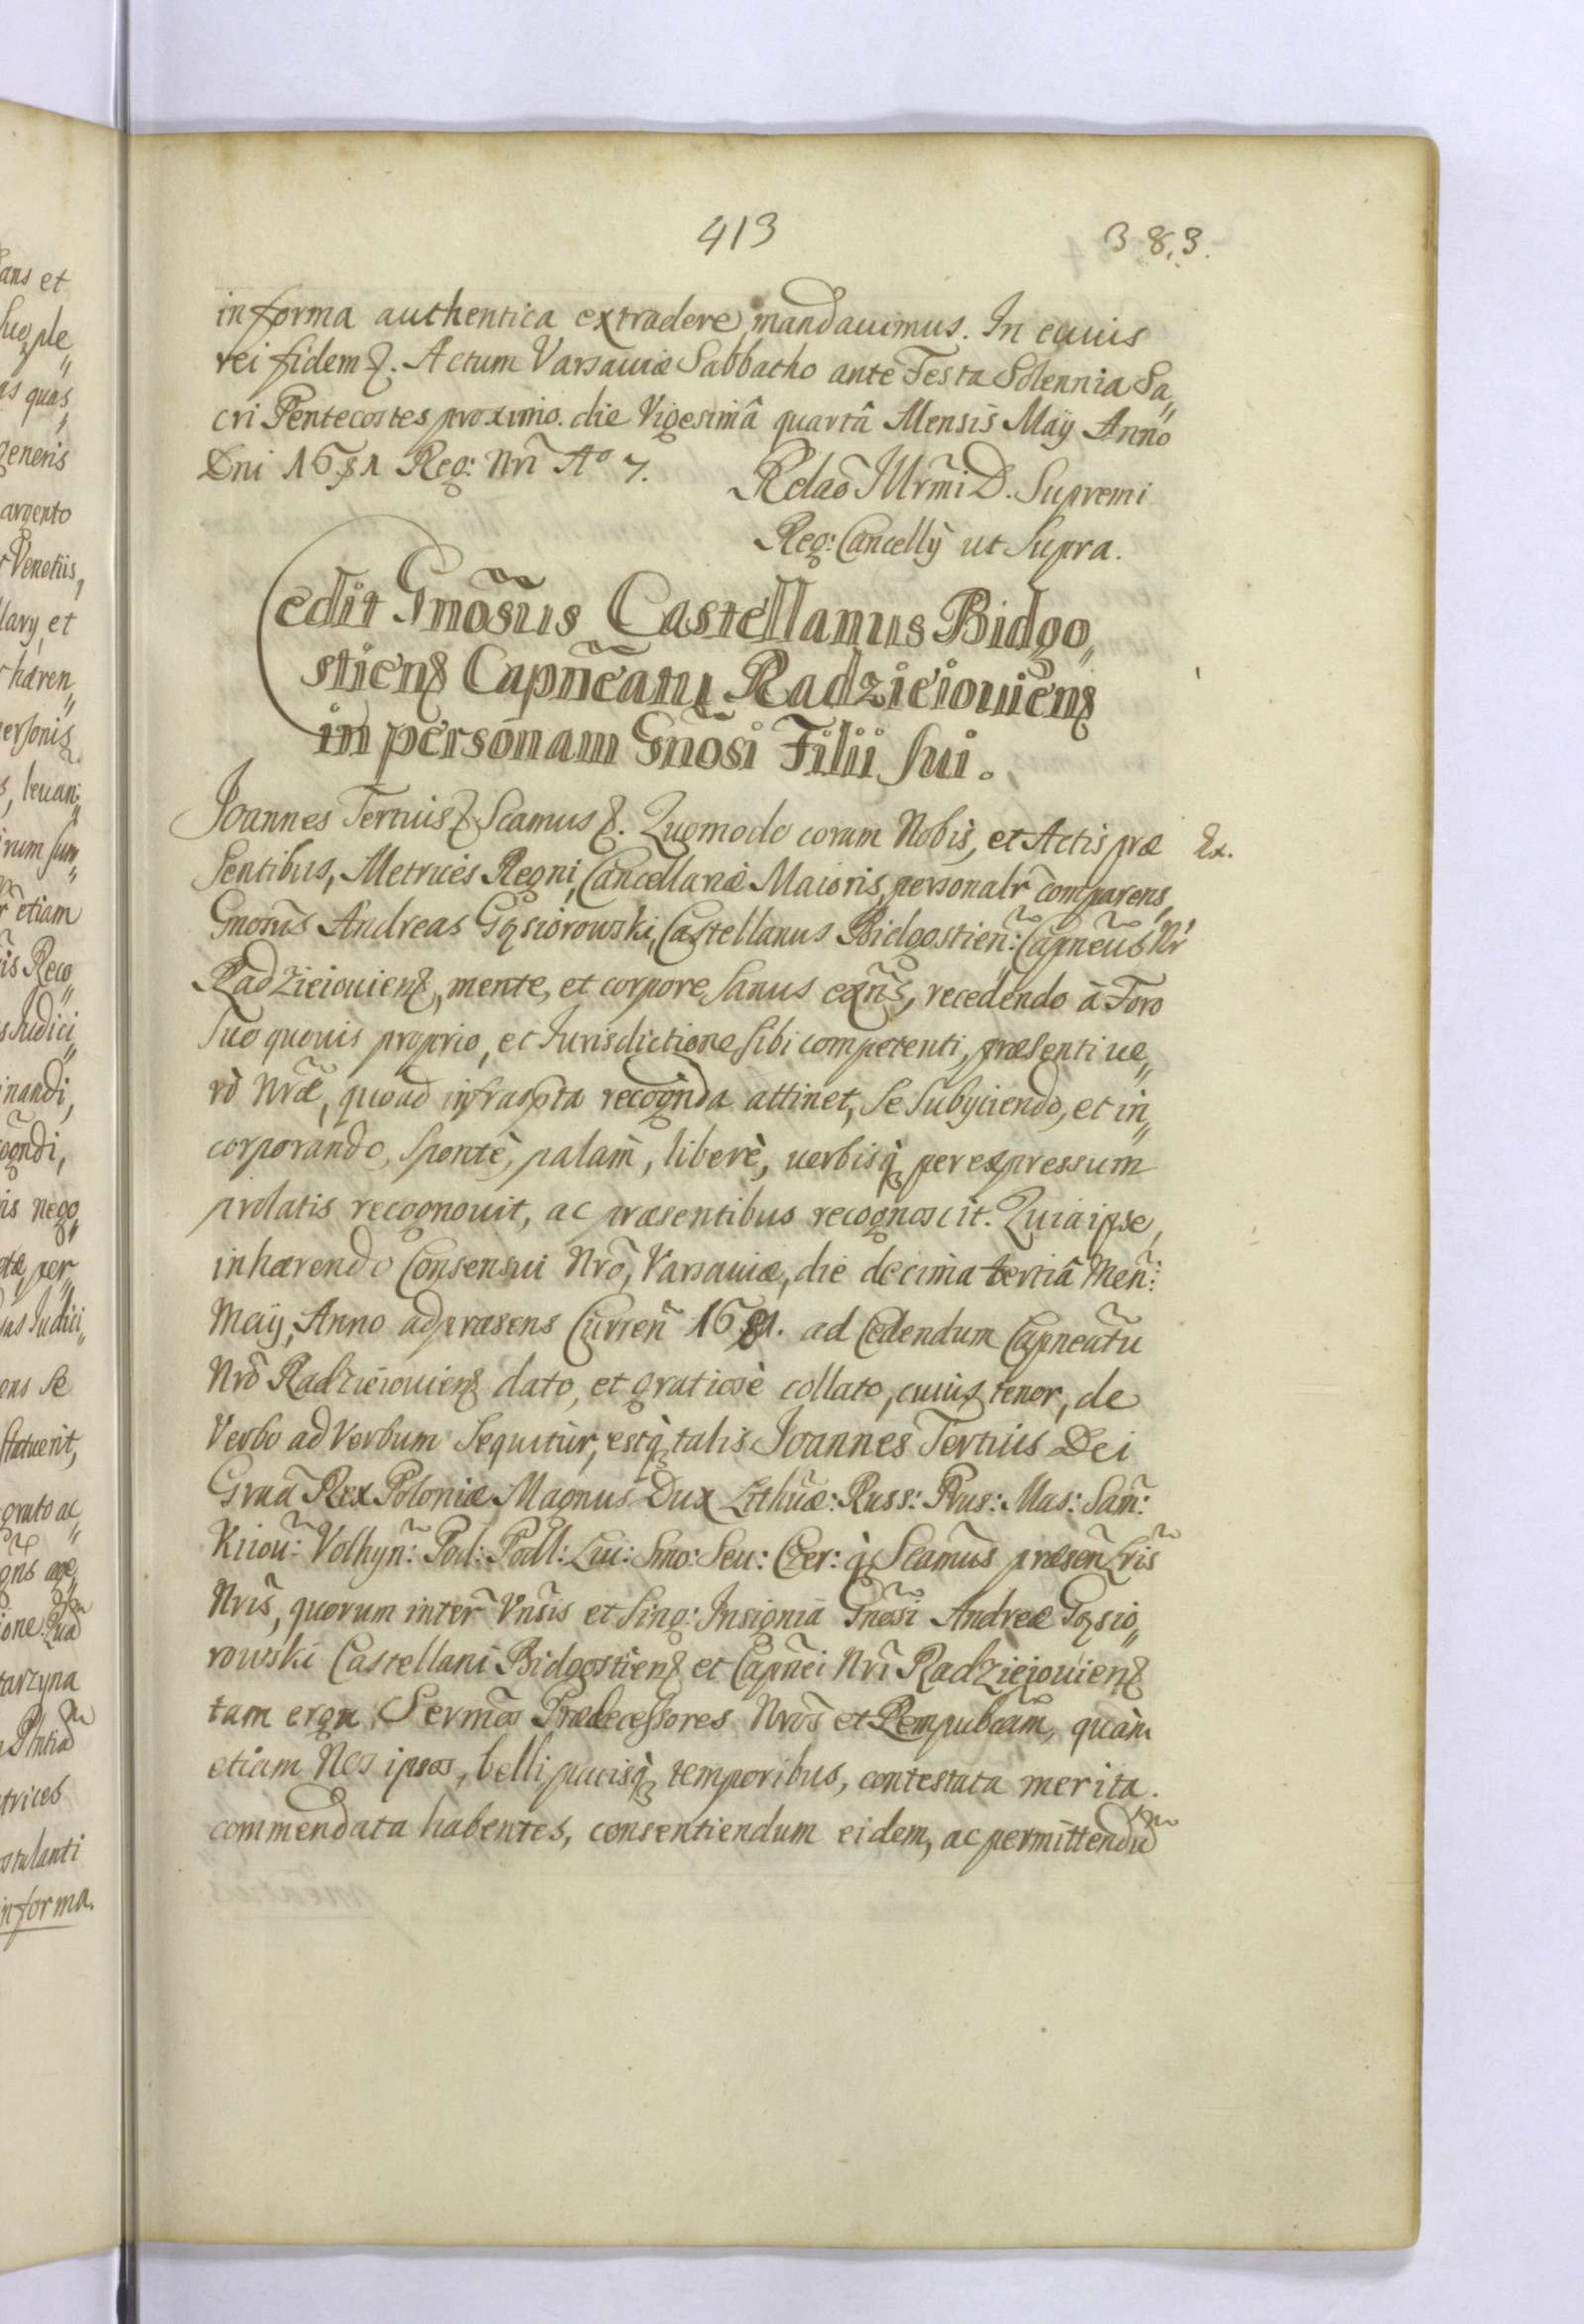 413
3 8,3.
in forma authentica extradere mandauimus. In cuius
rei fidem &. Actum Varsauiæ Sabbatho ante Festa Solennia Sa„
cri Pentecostes proximo. die Vigesimâ quartâ Mensis Maÿ Anno
Dni 1681 Reg: Nrĩ Aº 7.
Relaõ Illrm̃i D. Supremi
Reg: Cancellÿ ut Supra.
Cedit Gnõsus Castellanus Bidgo„
stien& Capñeatu Radzieiouien&
in personam Gnõsi Filii sui.
Joannes Tertius & Scamus &. Quomodo coram Nobis, et Actis præ
Ex.
sentibus, Metrices Regni, Cancellariæ Maioris, personalr̃ comparens,
Gnosũs Andreas Gąsiorowski, Castellanus Bidgostieñ: Capñeus Nr̃
Radzieiouien&, mente, et corpore sanus exñs, recedendo à Foro
suo quouis proprio, et Jurisdictione sibi competenti, præsenti ue„
rò Nrãe, quoad infrascpta recognda attinet, se subÿciendo, et in„
corporando, spontè, palam̀, liberè, uerbisq́ per expressum
prolatis recognouit, ac præsentibus recognoscit. Quia ipse,
inhærendo Consensui Nrõ, Varsauiæ, die decima tertiâ Meñ:
Maÿ, Anno ad præsens Curreñ 1681. ad Cedendum Capneatũ
Nrõ Radzieiouien& dato, et gratiosè collato, cuius tenor, de
Verbo ad Verbum sequitùr, estq́ talis Joannes Tertius Dei
Graã Rex Poloniæ Magnus Dux Lithũæ: Russ: Prus: Mas: Sam̃:
Kiioũ: Volhyñ: Pod: Podl: Liu: Smo: Seu: Czer: q́ Scamũs præseñ Lris̃
Nris̃, quorum inter̃ Vnĩsis et sing: Insignia Gnõsi Andreæ Gąsio„
rowski Castellani Bidgostien& et Capñei Nrĩ Radzieiouien&
tam erga Sermõs Prædecessores Nrõs et Rempubcãm, quàm
etiam Nos ipsos, belli pacisq́ temporibus, contestata merita.
commendata habentes, consentiendum eidem, ac permittendũ